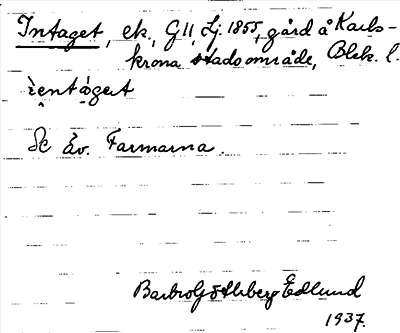 Intaget, ek., G11, Lj. 1855, gård å Karls-
krona stadsområde, Blek. l.
ìentǿgeɩt
Sc Äv. Farmarna.
Barbro Söderberg Edlund
1937.